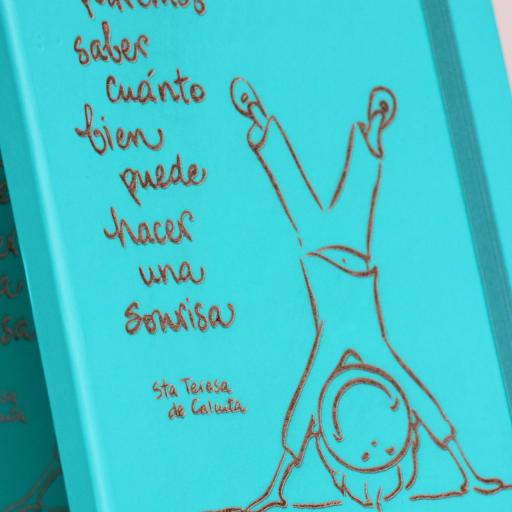 podremos
saber
cuánto
bien
puede
hacer
una
sonrisa
Sta Teresa
de Calcuta